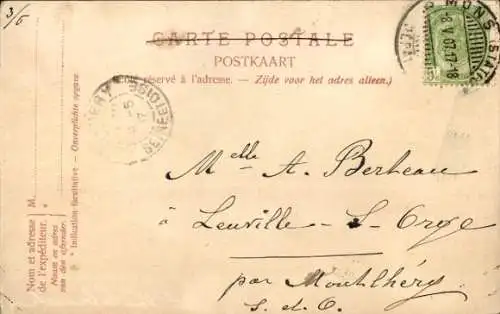 3/6
CARTE POSTALE
POSTKAART
réservé à l'adresse. - Zijde voor het adres alleen.)
MONS (STATI
8 V 07 17-18
SEINE-ET-OISE
Melle A. Berheau
à Leuville-S-Orge
par Montlhéry
S. et O.
Nom et adresse M.
de l'expéditeur. *
Naam en adres
van den afzender.
* Indication facultative - Onverplichte opgave